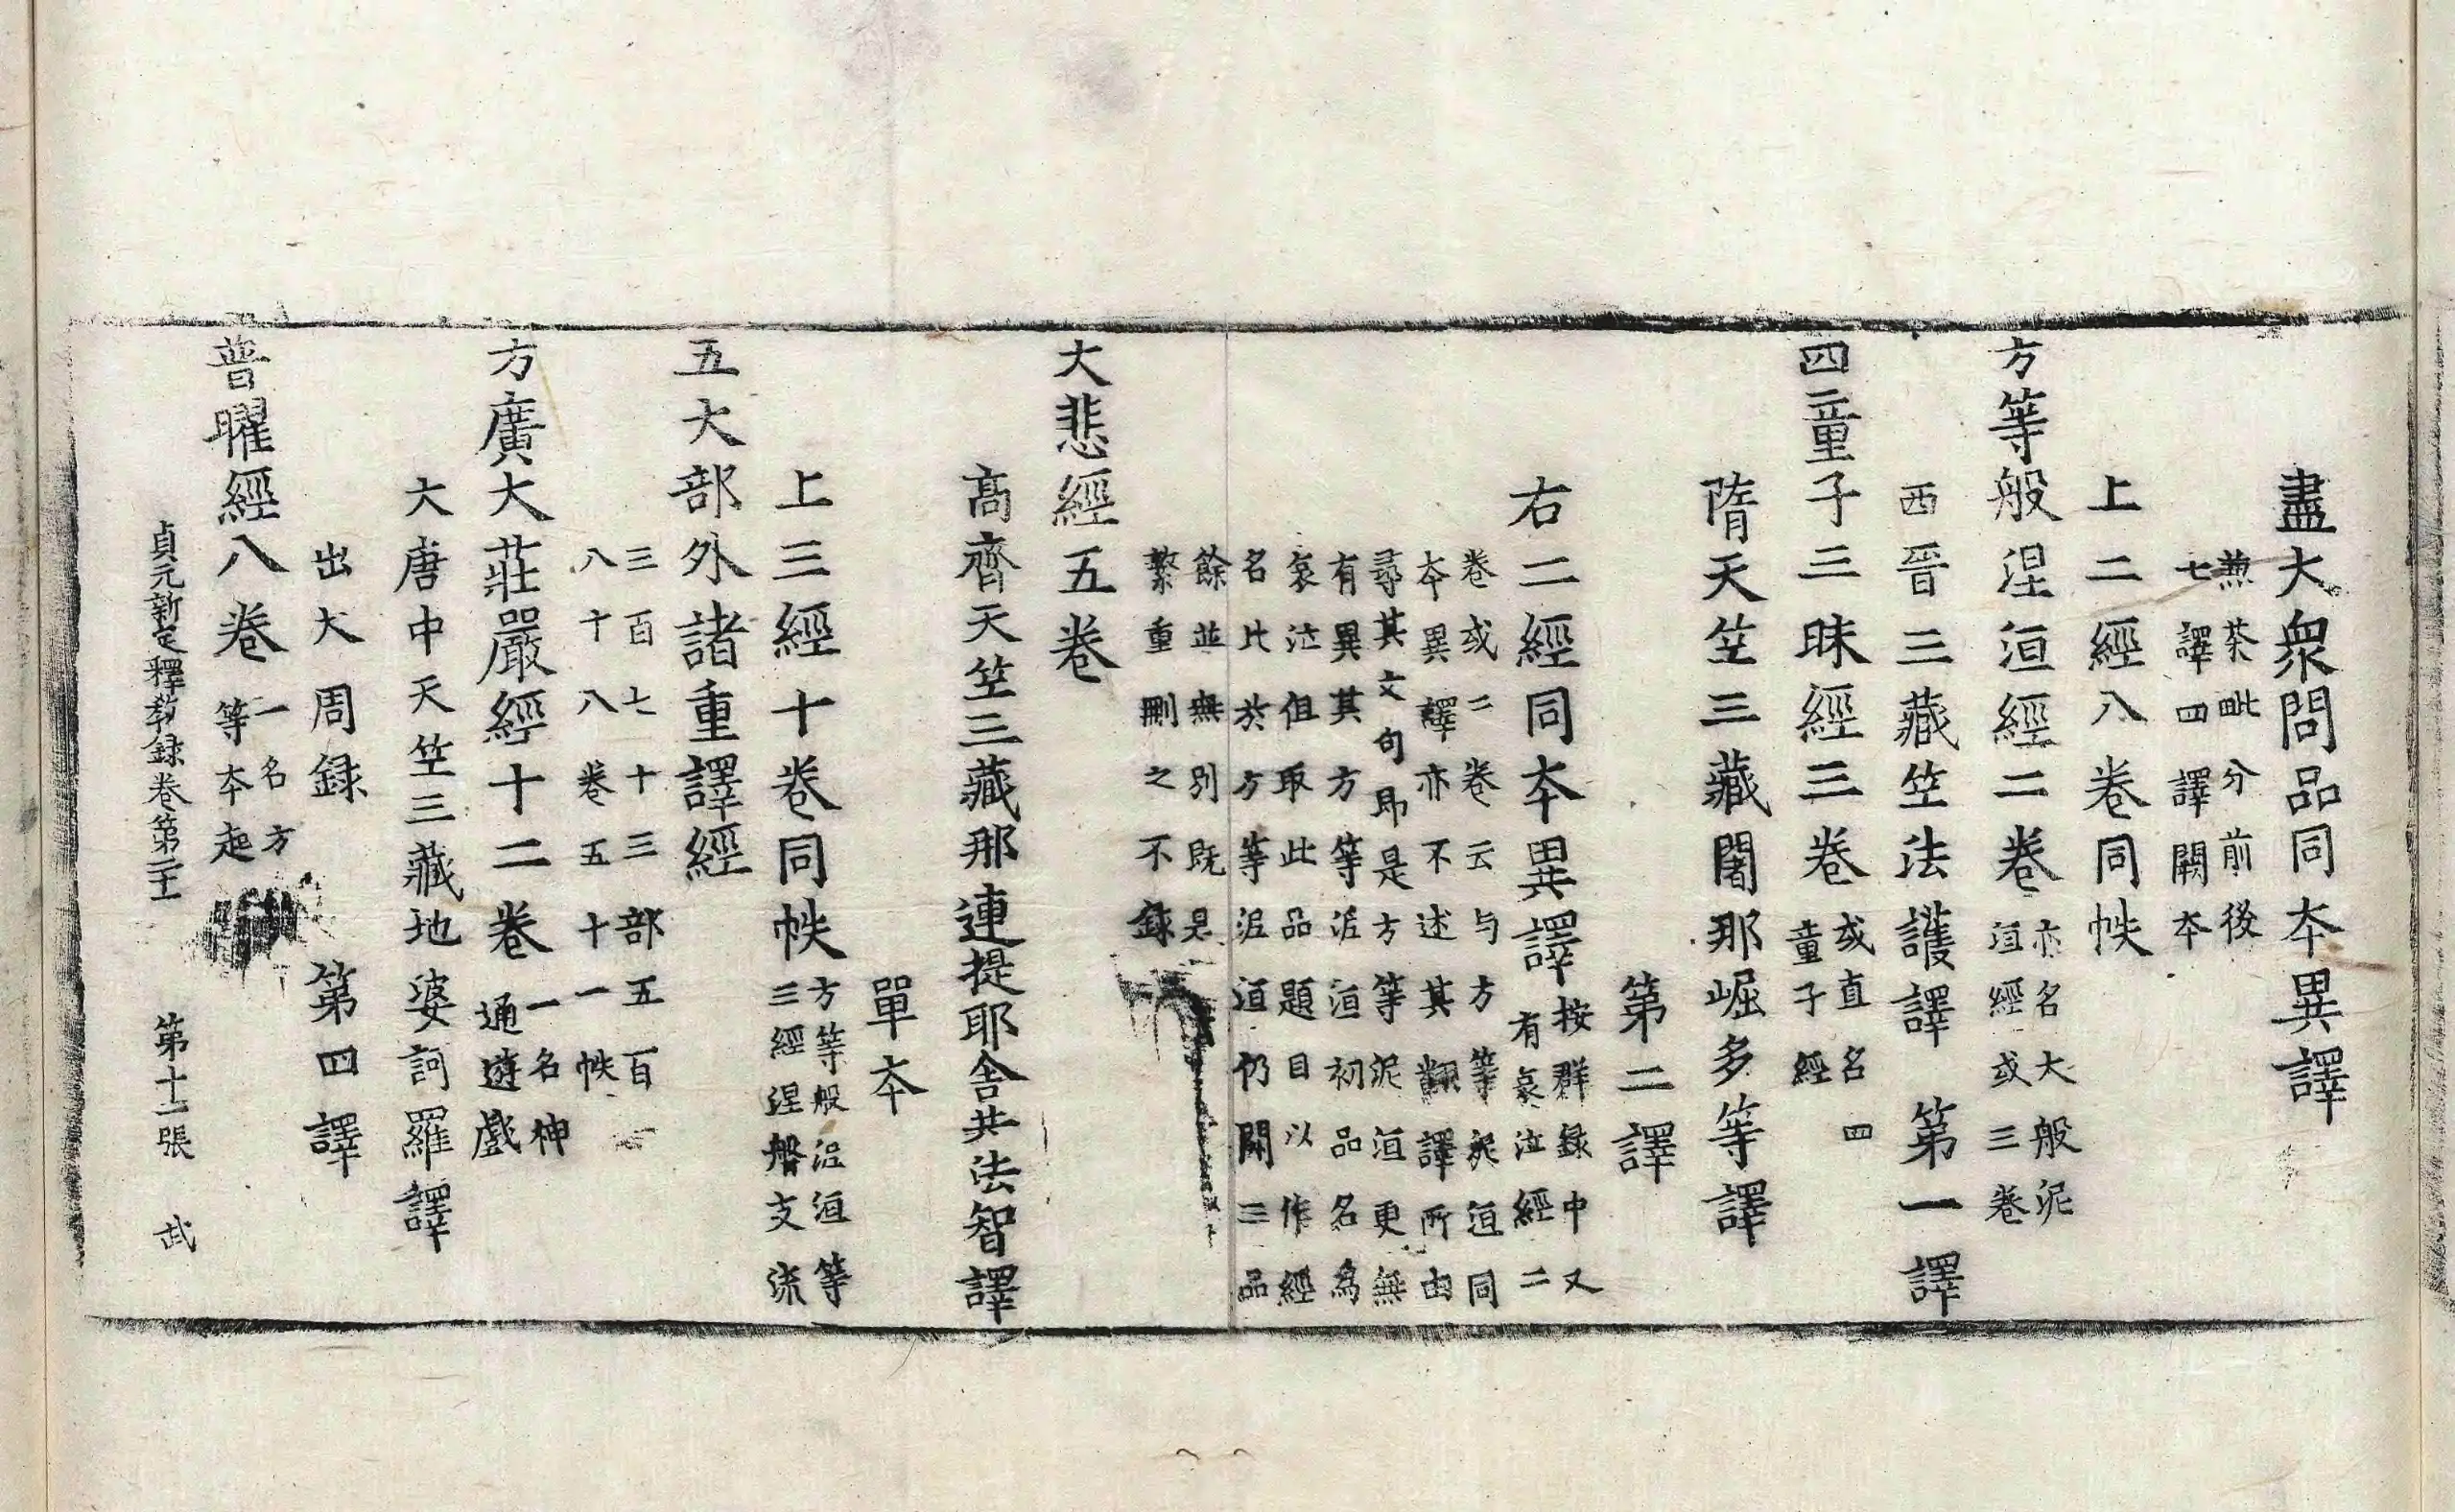 盡大衆問品同本異譯
兼茶毗分前後
七譯四譯闕本
上二經八卷同帙
方等般涅洹經二卷 亦名大般泥
洹經或三卷
西晉三藏竺法護譯 第一譯
四童子三昧經三卷 或直名四
童子經
隋天竺三藏闍那崛多等譯
第二譯
右二經同本異譯 按群錄中又
有哀泣經二
卷或三卷云与方等泥洹同
本異譯亦不述其翻譯所由
尋其文句即是方等泥洹更無
有異其方等泥洹初品名爲
哀泣但取此品題目以作經
名比於方等泥洹仍闕三品
餘並無別既是
繁重刪之不錄
大悲經五卷
高齊天竺三藏那連提耶舍共法智譯
單本
上三經十卷同帙 方等般泥洹等
三經涅槃支流
五大部外諸重譯經
三百七十三部五百
八十八卷五十一帙
方廣大莊嚴經十二卷 一名神
通遊戲
大唐中天竺三藏地婆訶羅譯
出大周録 第四譯
普曜經八卷 一名方
等本起
貞元新定釋教録卷第二十 第十一張 武